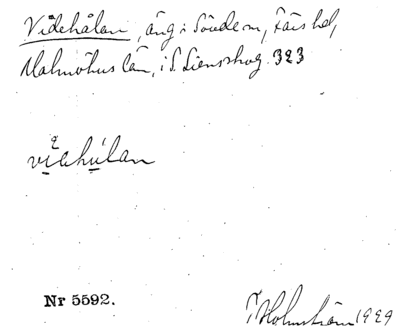 Videhålan, äng i Sövde sn, Färs hd,
Malmöhus län, i S. Liensskog. 323
Nr 5592.
T. Holmström 1929